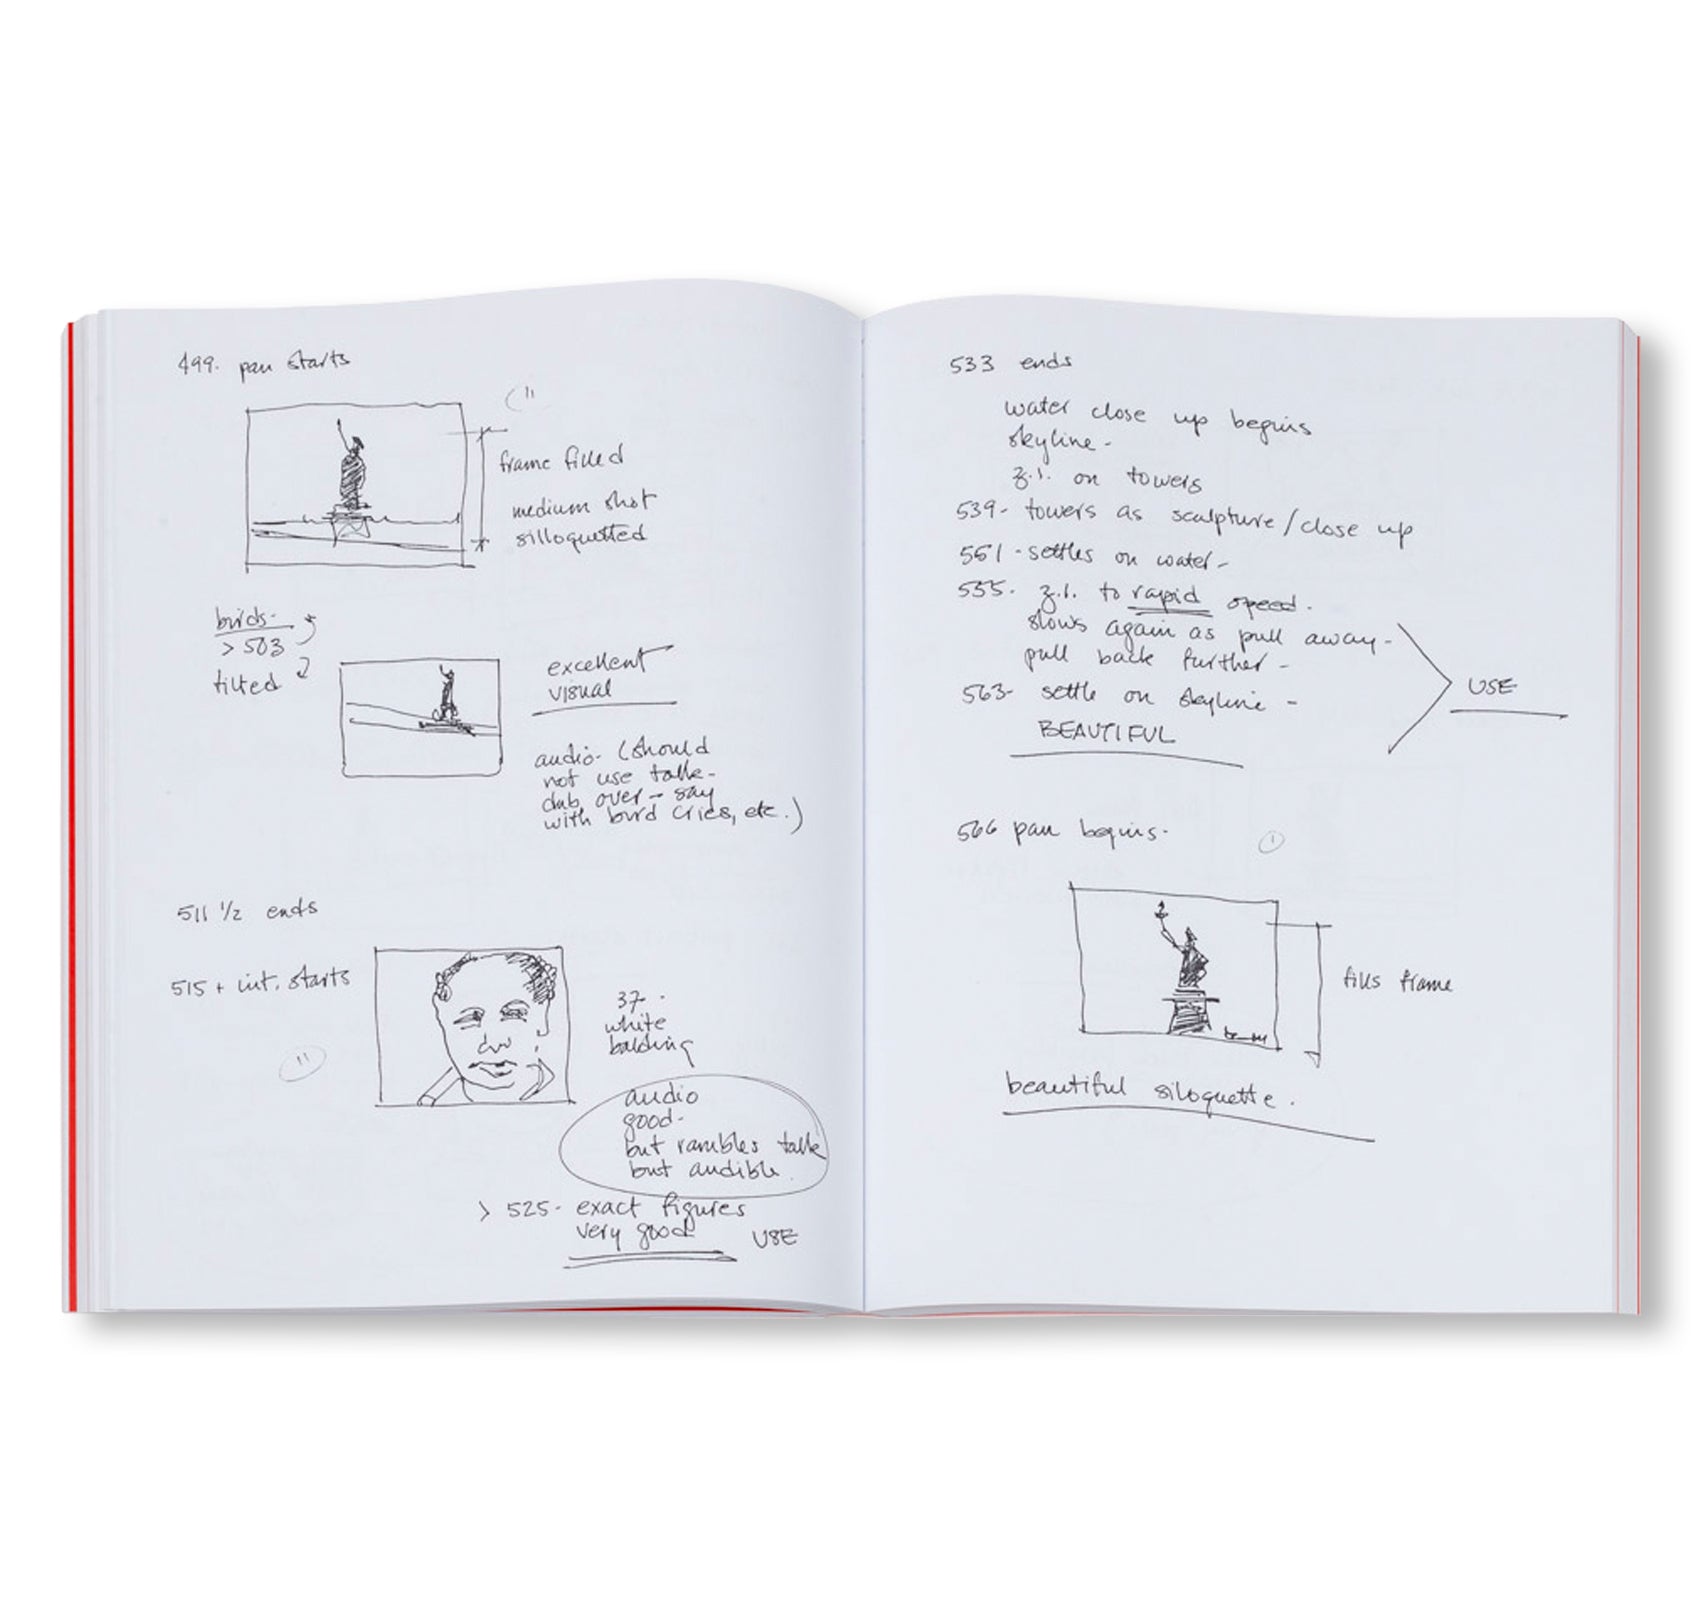 499. pan starts
11
frame filled
medium shot
silloquetted
birds-
> 503
tilted
excellent
visual
audio- (should
not use talk-
dub over - say
with bird cries, etc.)
511 1/2 ends
515 + int. starts
11
37 -
white
balding
audio
good-
but rambles talk
but audible.
> 525- exact figures
very good
USE
533 ends
water close up begins
skyline -
z.i. on towers
539- towers as sculpture/close up
551 - settles on water-
555- z.i. to rapid speed.
slows again as pull away-
pull back further-
563- settle on skyline -
BEAUTIFUL
USE
566 pan begins-
1
fills frame
beautiful siloquette.